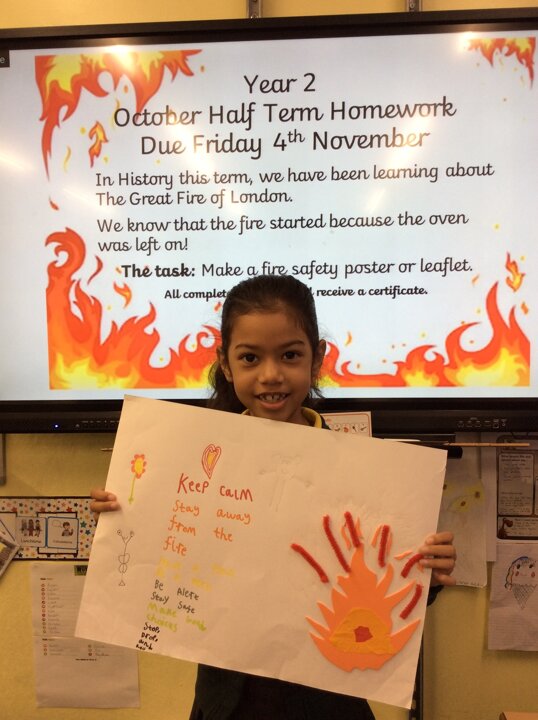 Year 2
October Half Term Homework
Due Friday 4th November
In History this term, we have been learning about
The Great Fire of London.
We know that the fire started because the oven
was left on!
The task: Make a fire safety poster or leaflet.
All receive a certificate.
KEEP CALM
Stay away
from the
fire
Be Alert
Stay Safe
Make
choices
Stop,
Drop,